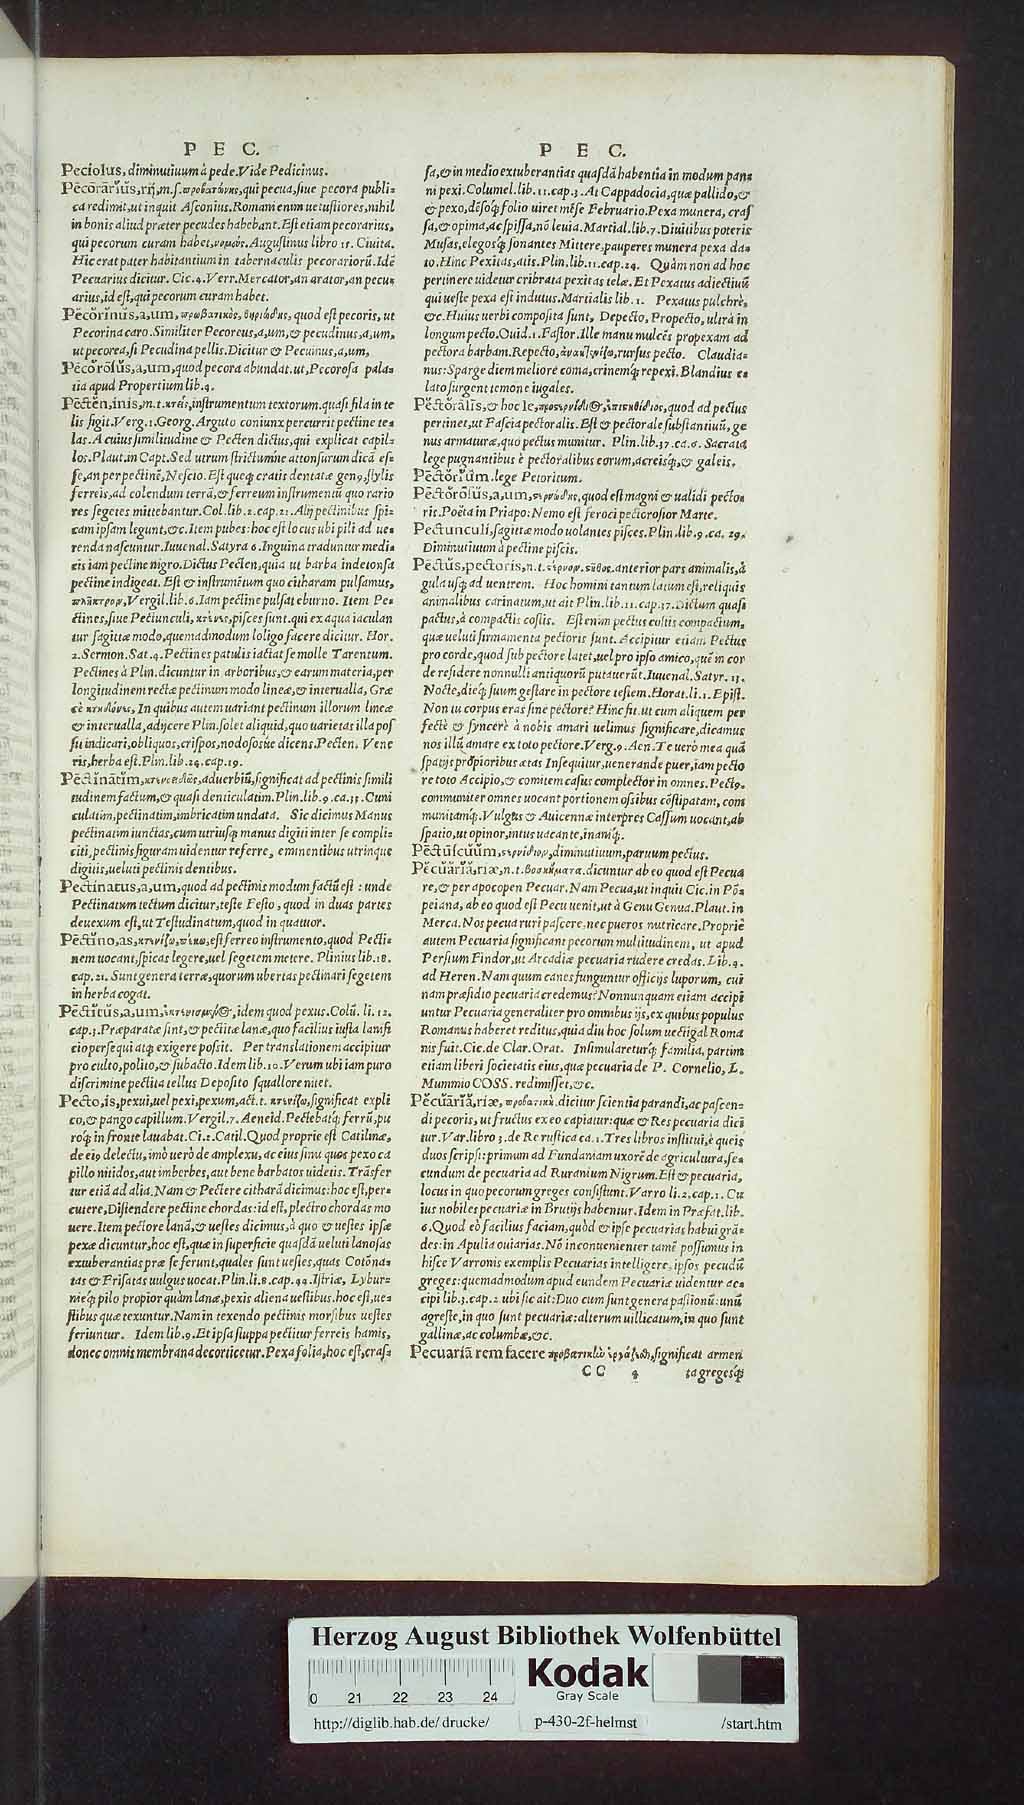 P E C.
Peciolus, diminutiuum à pede. Vide Pedicinus.
Pecorarius, rij, m. s. qui pecua, siue pecora publi=
ca redimit, ut inquit Asconius. Romani enim uetustiores, nihil
in bonis aliud præter pecudes habebant. Est etiam pecorarius,
qui pecorum curam habet, νομεύς. Augustinus libro 15. Ciuita.
Hic erat pater habitantium in tabernaculis pecorariorū. Idē
Pecuarius dicitur. Cic. 4. Verr. Mercator, an arator, an pecu=
arius, id est, qui pecorum curam habet.
Pecorinus, a, um, quod est pecoris, ut
Pecorina caro. Similiter Pecoreus, a, um, & pecudinus, a, um,
ut pecorea, si Pecudina pellis. Dicitur & Pecuinus, a, um,
Pecorosus, a, um, quod pecora abundat. ut, Pecorosa pala=
tia apud Propertium lib. 4.
Pecten, inis, m. t. κτείς, instrumentum textorum. quasi fila in te
lis figit. Verg. 1. Georg. Arguto coniunx percurrit pectine te=
las. A cuius similitudine & Pecten dictus, qui explicat capil=
los. Plaut. in Capt. Sed utrum strictimne attonsurum dicā es=
se, an per pectinē, Nescio. Est queq; cratis dentatæ gen9, stylis
ferreis, ad colendum terrā, & ferreum instrumentū quo rario
res segetes mittebantur. Col. lib. 2. cap. 21. Alij pectinibus spi=
cam ipsam legunt, &c. Item pubes: hoc est locus ubi pili ad ue=
renda nascuntur. Iuuenal. Satyra 6. Inguina traduntur medi=
cis iam pectine nigro. Dictus Pecten, quia ut barba indetonsa
pectine indigeat. Est & instrumētum quo citharam pulsamus,
πλῆκτρον, Vergil. lib. 6. Iam pectine pulsat eburno. Item Pe=
ctines, siue Pectiunculi, κτένες, pisces sunt. qui ex aqua iaculan
tur sagittæ modo, quemadmodum loligo facere dicitur. Hor.
2. Sermon. Sat. 4. Pectines patulis iactat se molle Tarentum.
Pectines à Plin. dicuntur in arboribus, & earum materia, per
longitudinem rectæ pectinum modo lineæ, & interualla, Græ
cè κτηδόνες, In quibus autem uariant pectinum illorum lineæ
& interualla, adijcere Plin. solet aliquid, quo uarietas illa pos
sit indicari, obliquos, crispos, nodososúe dicens. Pecten. Vene
ris, herba est. Plin. lib. 24. cap. 19.
Pectinatim, κτενοειδῶς, aduerbiū, significat ad pectinis simili
tudinem factum, & quasi denticulatim. Plin. lib. 9. ca. 33. Cuni
culatim, pectinatim, imbricatim undata. Sic dicimus Manus
pectinatim iunctas, cum utriusq; manus digiti inter se compli=
citi, pectinis figuram uidentur referre, eminentibus utrinque
digitis, ueluti pectinis dentibus.
Pectinatus, a, um, quod ad pectinis modum factū est: unde
Pectinatum tectum dicitur, teste Festo, quod in duas partes
deuexum est, ut Testudinatum, quod in quatuor.
Pectino, as, κτενίζω, πέκω, est ferreo instrumento, quod Pecti=
nem uocant, spicas legere, uel segetem metere. Plinius lib. 18.
cap. 21. Sunt genera terræ, quorum ubertas pectinari segetem
in herba cogat.
Pectitus, a, um, idem quod pexus. Colū. li. 12.
cap. 3. Præparatæ sint, & pectitæ lanæ, quo facilius iusta lanifi
cio persequi atq; exigere possit. Per translationem accipitur
pro culto, polito, & subacto. Idem lib. 10. Verum ubi iam puro
discrimine pectita tellus Deposito squallore nitet.
Pecto, is, pexui, uel pexi, pexum, act. t. κτενίζω, significat expli
co, & pango capillum. Vergil. 7. Aeneid. Pectebatq; ferū, pu
roq; in fronte lauabat. Ci. 2. Catil. Quod proprie est Catilinæ,
de eis delectu, imò uerò de amplexu, ac eius sinu quos pexo ca
pillo nitidos, aut imberbes, aut bene barbatos uidetis. Trāsfer
tur etiā ad alia. Nam & Pectere citharā dicimus: hoc est, per=
cutere, Distendere pectine chordas: id est, plectro chordas mo
uere. Item pectore lanā, & uestes dicimus, à quo & uestes ipsæ
pexæ dicuntur, hoc est, quæ in superficie quasdā ueluti lanosas
extuberantias præ se ferunt, quales sunt uestes, quas Cotōna=
tas & Frisatas uulgus uocat. Plin. li. 8. cap. 44. Istriæ, Lybur=
nieq; pilo propior quàm lanæ, pexis aliena uestibus. hoc est, ue=
stibus quæ texuntur. Nam in texendo pectinis morsibus uestes
feriuntur. Idem lib. 9. Et ipsa stuppa pectitur ferreis hamis,
donec omnis membrana decorticetur. Pexa folia, hoc est, cras=
P E C.
sa, & in medio extuberantias quasdā habentia in modum pan=
ni pexi. Columel. lib. 11. cap. 3. At Cappadocia, quæ pallido, &
& pexo, dēsoq; folio uiret mēse Februario. Pexa munera, cras
sa, & opima, ac spissa, nō leuia. Martial. lib. 7. Diuitibus poteris
Musas, elegosq; sonantes Mittere, pauperes munera pexa da=
to. Hinc Pexitas, atis. Plin. lib. 11. cap. 24. Quàm non ad hoc
pertinere uidetur cribrata pexitas telæ. Et Pexatus adiectiuū
qui ueste pexa est indutus. Martialis lib. 1. Pexatus pulchrè,
&c. Huius uerbi composita sunt, Depecto, Propecto, ultrà in
longum pecto. Ouid. 1. Fastor. Ille manu mulcēs propexam ad
pectora barbam. Repecto, rursus pecto. Claudia=
nus: Sparge diem meliore coma, crinemq; repexi. Blandius e=
lato surgent temone iugales.
Pectoralis, & hoc le, quod ad pectus
pertinet, ut Fascia pectoralis. Est & pectorale substantiuū, ge
nus armaturæ, quo pectus munitur. Plin. lib. 37. ca. 6. Sacrata
lege pugnantibus è pectoralibus eorum, acreisq; & galeis.
Pectorium. lege Petoritum.
Pectorosus, a, um, quod est magni & ualidi pecto=
ris. Poëta in Priapo: Nemo est feroci pectorosior Marte.
Pectunculi, sagittæ modo uolantes pisces. Plin. lib. 9. ca. 29.
Diminutiuum à pectine piscis.
Pectus, pectoris, n. t. στέρνον, στῆθος. anterior pars animalis, à
gula usq; ad uentrem. Hoc homini tantum latum est, reliquis
animalibus carinatum, ut ait Plin. lib. 11. cap. 37. Dictum quasi
pactus, à compactis costis. Est enim pectus costis compactum,
quæ ueluti firmamenta pectoris sunt. Accipitur etiam Pectus
pro corde, quod sub pectore latet, uel pro ipso amico, quē in cor
de residere nonnulli antiquorū putauerūt. Iuuenal. Satyr. 13.
Nocte, dieq; suum gestare in pectore testem. Horat. li. 1. Epist.
Non tu corpus eras sine pectore? Hinc fit. ut cum aliquem per
fectè & syncerè à nobis amari uelimus significare, dicamus
nos illū amare ex toto pectore. Verg. 9. Aen. Te uerò mea quā
spatijs propioribus ætas Insequitur, uenerande puer, iam pecto
re toto Accipio, & comitem casus complector in omnes. Pect9.
communiter omnes uocant portionem ossibus cōstipatam, com
munitamq;. Vulgus & Auicennæ interpres Cassum uocant, ab
spatio, ut opinor, intus uacante, inaniq;.
Pectusculum, diminutiuum, paruum pectus.
Pecuaria, riæ, n. t. βοσκήματα. dicuntur ab eo quod est Pecua
re, & per apocopen Pecuar. Nam Pecua, ut inquit Cic. in Pō=
peiana, ab eo quod est Pecu uenit, ut à Genu Genua. Plaut. in
Merca. Nos pecua ruri pascere, nec pueros nutricare. Propriè
autem Pecuaria significant pecorum multitudinem, ut apud
Persium Findor, ut Arcadiæ pecuaria rudere credas. Lib. 4.
ad Heren. Nam quum canes funguntur officijs luporum, cui
nam præsidio pecuaria credemus? Nonnunquam etiam accipi
untur Pecuaria generaliter pro omnibus ijs, ex quibus populus
Romanus haberet reditus, quia diu hoc solum uectigal Roma
nis fuit. Cic. de Clar. Orat. Insimulareturq; familia, partim
etiam liberi societatis eius, quæ pecuaria de P. Cornelio, L.
Mummio COSS. redimisset, &c.
Pecuaria, riæ, προβατική. dicitur scientia parandi, ac pascen=
di pecoris, ut fructus ex eo capiatur: quæ & Res pecuaria dici
tur. Var. libro 3. de Re rustica ca. 1. Tres libros institui, è queis
duos scripsi: primum ad Fundaniam uxorē de agricultura, se=
cundum de pecuaria ad Ruranium Nigrum. Est & pecuaria,
locus in quo pecorum greges consistunt. Varro li. 2. cap. 1. Cu
ius nobiles pecuariæ in Brutijs habentur. Idem in Præfat. lib.
6. Quod eò facilius faciam, quòd & ipse pecuarias habui grā=
des: in Apulia ouiarias. Nō inconuenienter tamē possumus in
hisce Varronis exemplis Pecuarias intelligere, ipsos pecudū
greges: quemadmodum apud eundem Pecuariæ uidentur ac=
cipi lib. 3. cap. 2. ubi sic ait: Duo cum sunt genera pastionū: unū
agreste, in quo sunt pecuariæ: alterum uillicatum, in quo sunt
gallinæ, ac columbæ, &c.
Pecuariā rem facere significat armen
CC 4 ta gregesq;
Herzog August Bibliothek Wolfenbüttel
0 21 22 23 24
Kodak
Gray Scale
http://diglib.hab.de/drucke/ p-430-2f-helmst /start.htm